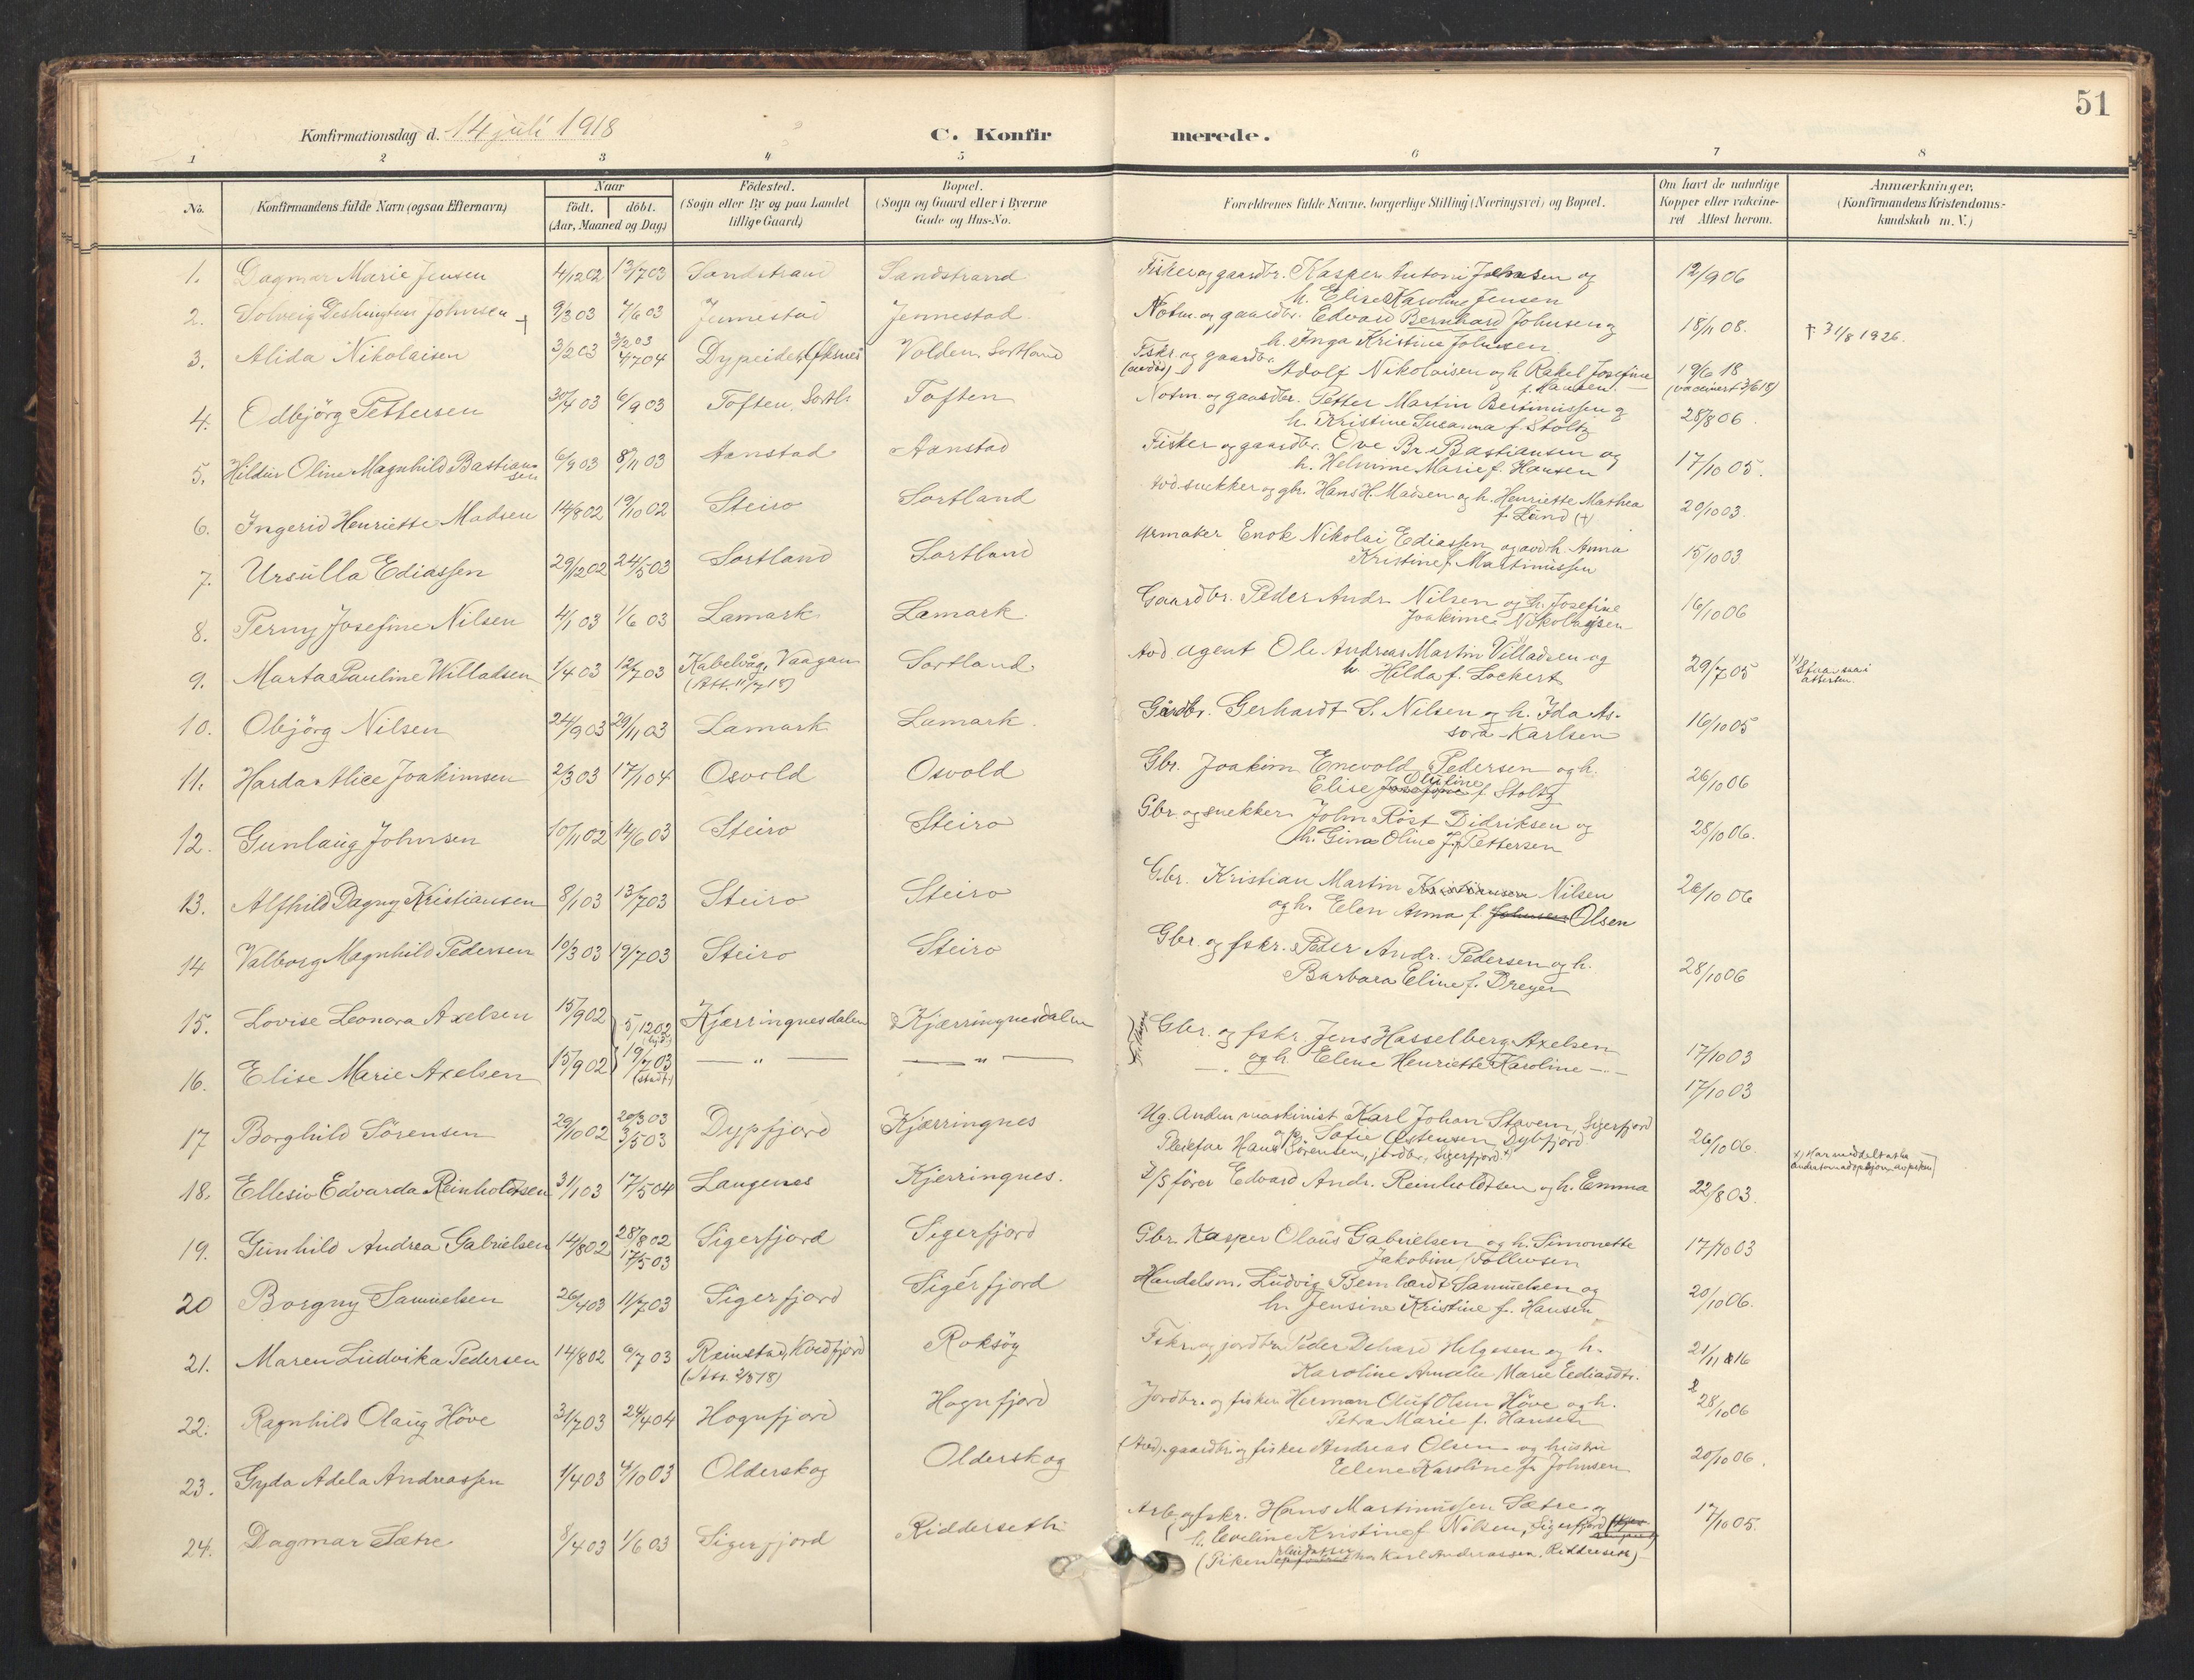 51
Konfirmationsdag d. 14 juli 1918
C. Konfirmerede.
1 2 3 4 5 6 7 8
No.
Konfirmandens fulde Navn (ogsaa Efternavn)
Naar
födt. döbt.
(Aar, Maaned og Dag)
Födested.
(Sogn eller By og paa Landet
tillige Gaard)
Bopæl.
(Sogn og Gaard eller i Byerne
Gade og Hus-No.
Forældrenes fulde Navne, borgerlige Stilling (Næringsvei) og Bopæl.
Om havt de naturlige
Kopper eller vakcine-
ret Attest herom.
Anmærkninger.
(Konfirmandens Kristendoms-
kundskab m. V.)
1. Dagmar Marie Jensen 4/12 02 13/7 03 Sandstrand Sandstrand Fisker og gaardbr. Kasper Antoni Jensen og
h. Elise Karoline Jensen 12/9 06
2. Solveig Johnsen + 9/3 03 7/6 03 Jennestad Jennestad. Notm. og gaardbr. Edvard Bernhard Johnsen og
h. Inga Kristine Johnsen 18/11 08. † 31/8 1926.
3. Alida Nikolaisen 3/2 03 3/2 03
4/7 04 Dypeidet, Øksnes Volden, Sortland Fskr. og gaardbr.
(avdöd) Adolf Nikolaisen og h. Rakel Josefine
f. Hansen. 19/6 18
(vaccinert 3/6 18)
4. Odbjörg Pettersen 30/4 03 6/9 03 Toften, Sortl. Toften Notm. og gaardbr. Petter Martin Bertinussen og
h. Kristine Susanna f. Stoltz 28/8 06
5. Hildur Oline Magnhild Bastian-
sen 6/9 03 8/11 03 Aanstad Aanstad Fisker og gaardbr. Ove Br. Bastiansen og
h. Helmine Marie f. Hansen 17/10 05.
6. Ingerid Henriette Madsen 14/8 02 19/10 02 Steiro Sortland Avd. snekker og gbr. Hans H. Madsen og h. Henriette Mathea
f. Lund (+) 20/10 03
7. Ursulla Ediassen 29/12 02 24/5 03 Sortland Sortland Urmaker Enok Nikolai Ediassen og avd h. Anna
Kristine f. Martinussen 15/10 03
8. Perny Josefine Nilsen 4/1 03 1/6 03 Lamark Lamark. Gaardbr. Peder Andr. Nilsen og h. Josefine
Joakime Nikolaysen 16/10 06
9. Marta Pauline Willadsen 1/4 03 12/7 03 Kabelvåg, Vaagan
(Att. 11/7 18) Sortland Avd. agent Ole Andreas Martin Villadsen og
h. Hilda f. Lockert 29/7 05
10. Objörg Nilsen 24/9 03 29/11 03 Lamark Lamark. Gårdbr. Gerhardt S. Nilsen og h. Ida As-
sora Karlsen 16/10 05
11. Harda Alice Joakimsen 2/3 03 17/1 04 Osvold Osvold Gbr. Joakim Enevold Pedersen og h.
Elise Josefine Olufine f Stoltz 26/10 06
12. Gunlaug Johnsen 10/11 02 14/6 03 Steiro Steiro Gbr. og snekker John Röst Didriksen og
h. Gina Oline f. Pettersen 28/10 06.
13. Alfhild Dagny Kristiansen 8/1 03 13/7 03 Steiro Steiro Gbr. Kristian Martin Kristiansen Nilsen
og h. Elen Anna f. Johnsen Olsen 26/10 06
14 Valborg Magnhild Pedersen 10/3 03 19/7 03 Steiro Steiro Gbr. og fskr. Peder Andr. Pedersen og h.
Barbara Eline f. Dreyer 28/10 06
15. Lovise Leonora Axelsen 15/9 02 5/12 02 Kjærringnesdalen Kjærringnesdalen Gbr. og fskr. Jens Hasselberg Axelsen 17/10 03
16. Elise Marie Axelsen 15/9 02 19/7 03
(stadf.) — " — — " — og h. Elene Henriette Karoline — 17/10 03
17 Borghild Sörensen 29/10 02 20/3 03
3/5 03 Dypfjord Kjærringnes Ug. Anden maskinist Karl Johan Stavem, Sigerfjord
og p. Sofie Østensen, Dybfjord
Pleiefar Hans Sörensen, jordbr., Sigerfjord x) 26/10 06
18. Ellesiv Edvarda Reinholdtsen 31/1 03 17/5 04 Langenes Kjerringnes. D/S förer Edvard Andr. Reinholdtsen og h. Emma 22/8 03.
19. Gunhild Andrea Gabrielsen 14/8 02 28/8 02
17/5 03 Sigerfjord Sigerfjord Gbr. Kasper Olaus Gabrielsen og h. Simonette
Jakobine Tollevsen 17/10 03
20 Borgny Samuelsen 26/4 03 11/7 03 Sigerfjord Sigerfjord Handelsm. Ludvig Bernhardt Samuelsen og
h. Jensine Kristine f. Hansen 20/10 06.
21. Maren Ludvika Pedersen 14/8 02 6/7 03 Reinstad, Kvedfjord Roksöy Fskr. og jordbr. Peder Helgesen og h.
Karoline Amalie Marie Ediasdtr. 21/11 16
22. Ragnhild Olaug Höve 31/7 03 24/4 04 Hognfjord Hognfjord Jordbr. og fisker Herman Oluf Olsen Höve og h.
Petra Marie f. Hansen 28/10 06
23. Gyda Adela Andreassen 1/4 03 4/10 03 Olderskog Olderskog (Avd.) gaardbr. og fisker Andreas Olsen og hustru
Elene Karoline f. Johnsen 20/10 06.
24. Dagmar Sætre 8/4 03 1/6 03 Sigerfjord Ridderseth Arb. og fskr. Hans Martinussen Sætre og
h. Eveline Kristine f Nilsen, Sigerfjord
(Piken hos Karl Andreassen, Ridderseth) 17/10 05.